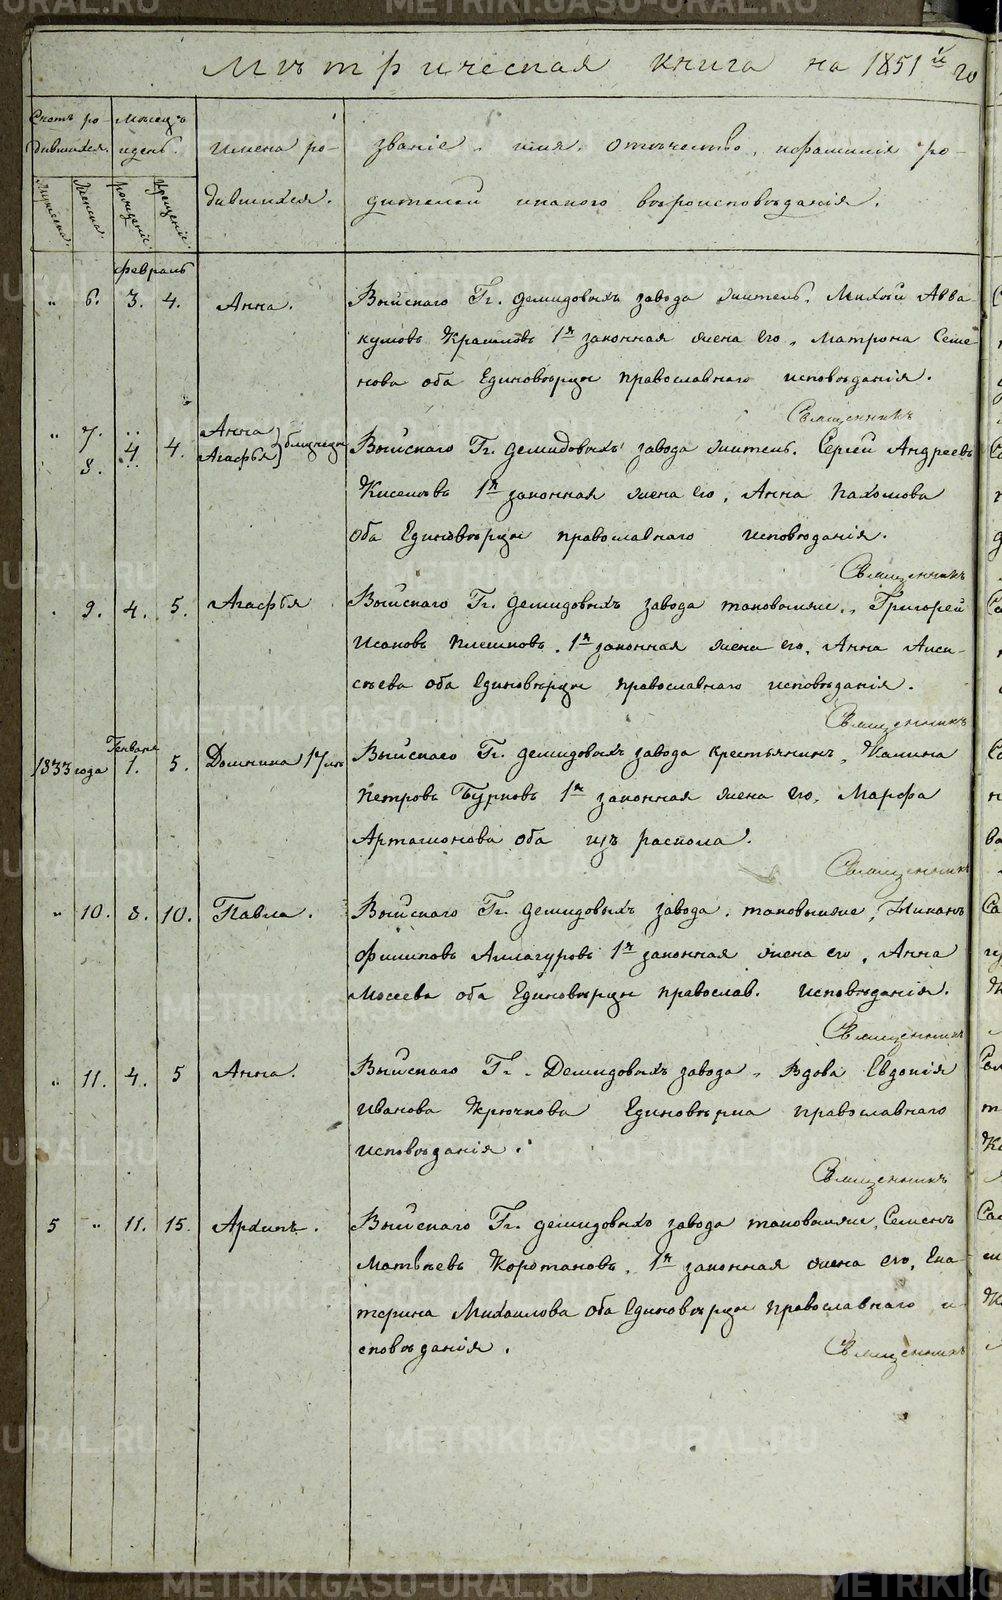 METRIKI.GASO-URAL.RU
Метрическая книга на 1851й го
Счетъ ро-
дившихся.
Месяцъ
и день.
Имена ро-
дившихся.
Званіе, имя, отчество, и фамилія ро-
дителей и какого вѣроисповѣданія.
Мужеска.
Женска.
рожденіе.
крещеніе.
февраль
" 6. 3. 4. Анна. Выйскаго Гг. Демидовыхъ завода житель, Михей Авва-
кумовъ Крашловъ 1я законная жена его, Матрона Семе-
нова оба Единовѣрцы православнаго исповѣданія.
Священникъ
" 7. 8. 4 4. Анна Агафья } близнецы Выйскаго Гг. Демидовыхъ завода житель, Сергей Андреевъ
Киселевъ 1я законная жена его, Анна Пахомова
оба Единовѣрцы православнаго исповѣданія.
Священникъ
. 9. 4. 5. Агафья Выйскаго Гг. Демидовыхъ завода таковыяже, Григорей
Исаковъ Плешковъ, 1я законная жена его, Анна Алек-
сѣева оба Единовѣрцы православнаго исповѣданія.
Священникъ
1833 года Генваря 1. 5. Домнина 17 лѣт Выйскаго Гг. Демидовыхъ завода крестьянинъ, Калина
Петровъ Бурковъ 1я законная жена его, Марфа
Артамонова оба изъ раскола.
Священникъ
" 10. 8. 10. Павла. Выйскаго Гг. Демидовыхъ завода, таковыяже, Никонъ
Филиповъ 1я законная жена его, Анна
Мосеева оба Единовѣрцы православ. исповѣданія.
Священникъ
" 11. 4. 5 Анна. Выйскаго Гг. Демидовыхъ завода, вдова Евдокія
Иванова Крючкова Единовѣрка православнаго
исповѣданія.
Священникъ
5 " 11. 15. Архипъ. Выйскаго Гг. Демидовыхъ завода таковыяже, Семенъ
Матвѣевъ Коротаковъ, 1я законная жена его, Ека-
терина Михаилова оба Единовѣрцы православнаго и-
сповѣданія.
Священникъ
METRIKI.GASO-URAL.RU